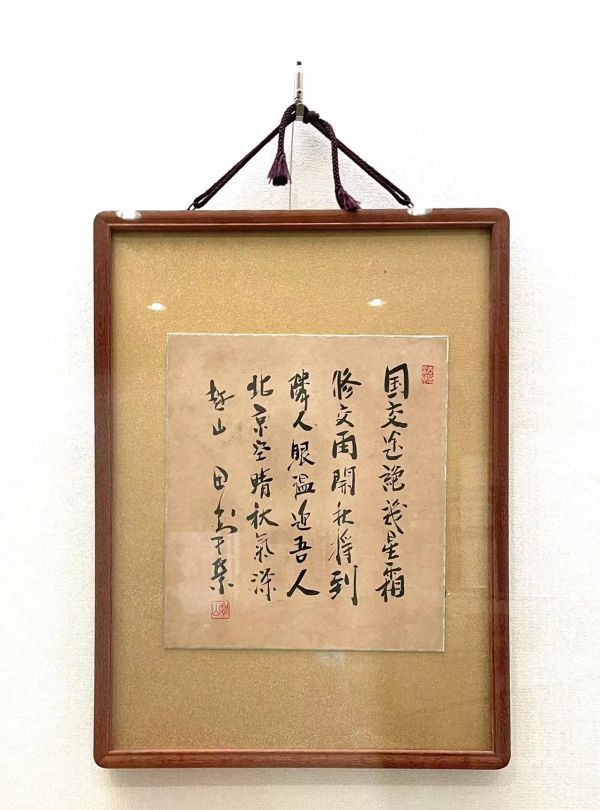 国交途絶幾星霜
修交再開秋将到
隣人眼温迎吾人
北京空晴秋氣深
越山 田中角榮